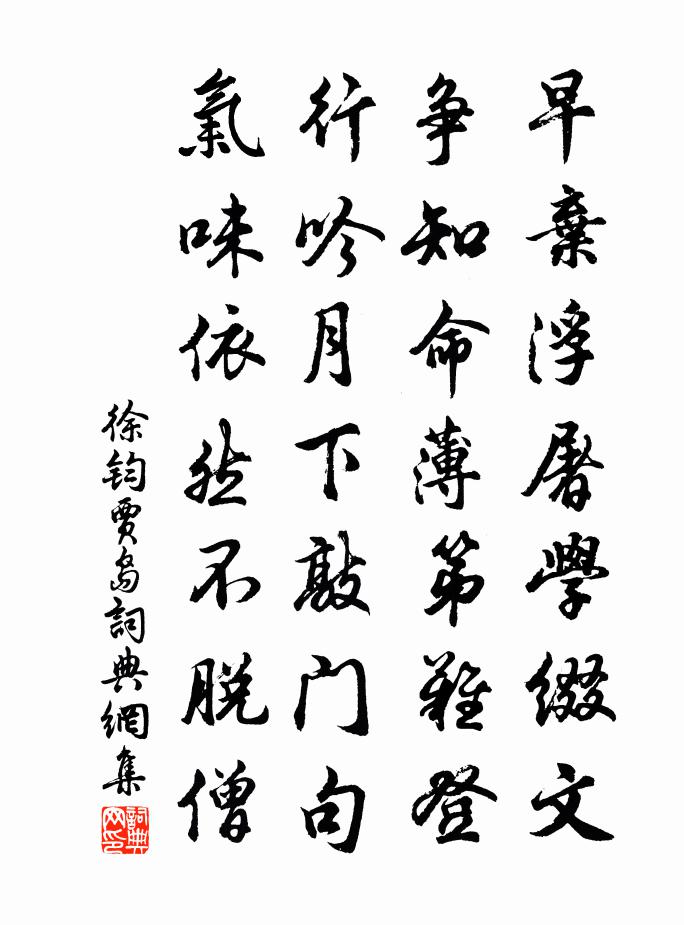 早棄浮屠學綴文
争知命薄第難登
行吟月下敲门句
氣味依然不脱僧
徐鈞賈島詞典網集
詞典网印